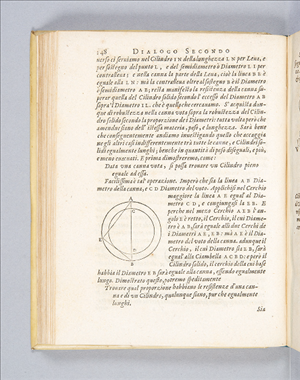 148 DIALOGO SECONDO
nerso ci seruiamo nel Cilindro IN della lunghezza IN per Leua, e
per sostegno del punto L, e del semidiametro LI per
contralleua; e nella canna la parte della Leua, cioè la linea BE è
egual alla IN: mà la contralleua oltre al sostegno B è il Diametro
ò semidiametro AB; resta manifesto la resistenza della canna su-
perar quella del Cilindro solido secondo l'eccesso del Diametro AB
sopra'l Diametro IL. che è quello che cercauamo. S'acquista dun-
que di robustezza nella canna vota sopra la robustezza del Cilin-
dro solido secondo la proporzione de i Diametri: tutta volta però che
amendue siano dell'istessa materia, peso, e lunghezza. Sarà bene
che conseguentemente andiamo inuestigando quello che accaggia
ne gli altri casi indifferentemente trà tutte le canne, e Cilindri so-
lidi egualmente lunghi; benche in quantità di peso diseguali, e più,
e meno euacuati. E prima dimostreremo, come:
Data vna canna vota, si possa trouare vn Cilindro pieno
eguale ad essa.
Facilissima è tal' operazione. Imperò che sia la linea AB Dia-
metro della canna, e CD Diametro del voto. Applichisi nel Cerchio
maggiore la linea AE egual al Dia-
metro CD, e congiungasi la EB. E
perche nel mezo Cerchio AEB l'an-
golo E è retto, il Cerchio, il cui Diame-
tro è AB, sarà eguale alli due Cerchi de
i Diametri AE, EB; mà AE è il Dia-
metro del voto della canna. adunque il
Cerchio, il cui Diametro sia EB, sarà
egual alla Ciambella ACBD: e però il
Cilindro solido, il cerchio della cui base
habbia il Diametro EB sarà eguale alla canna, essendo egualmente
lungo. Dimostrato questo, potremo speditamente
Trouare qual proporzione habbiano le resistenze d'una canna
e di vn Cilindro, qualunque siano, pur che egualmente
lunghi.
Sia